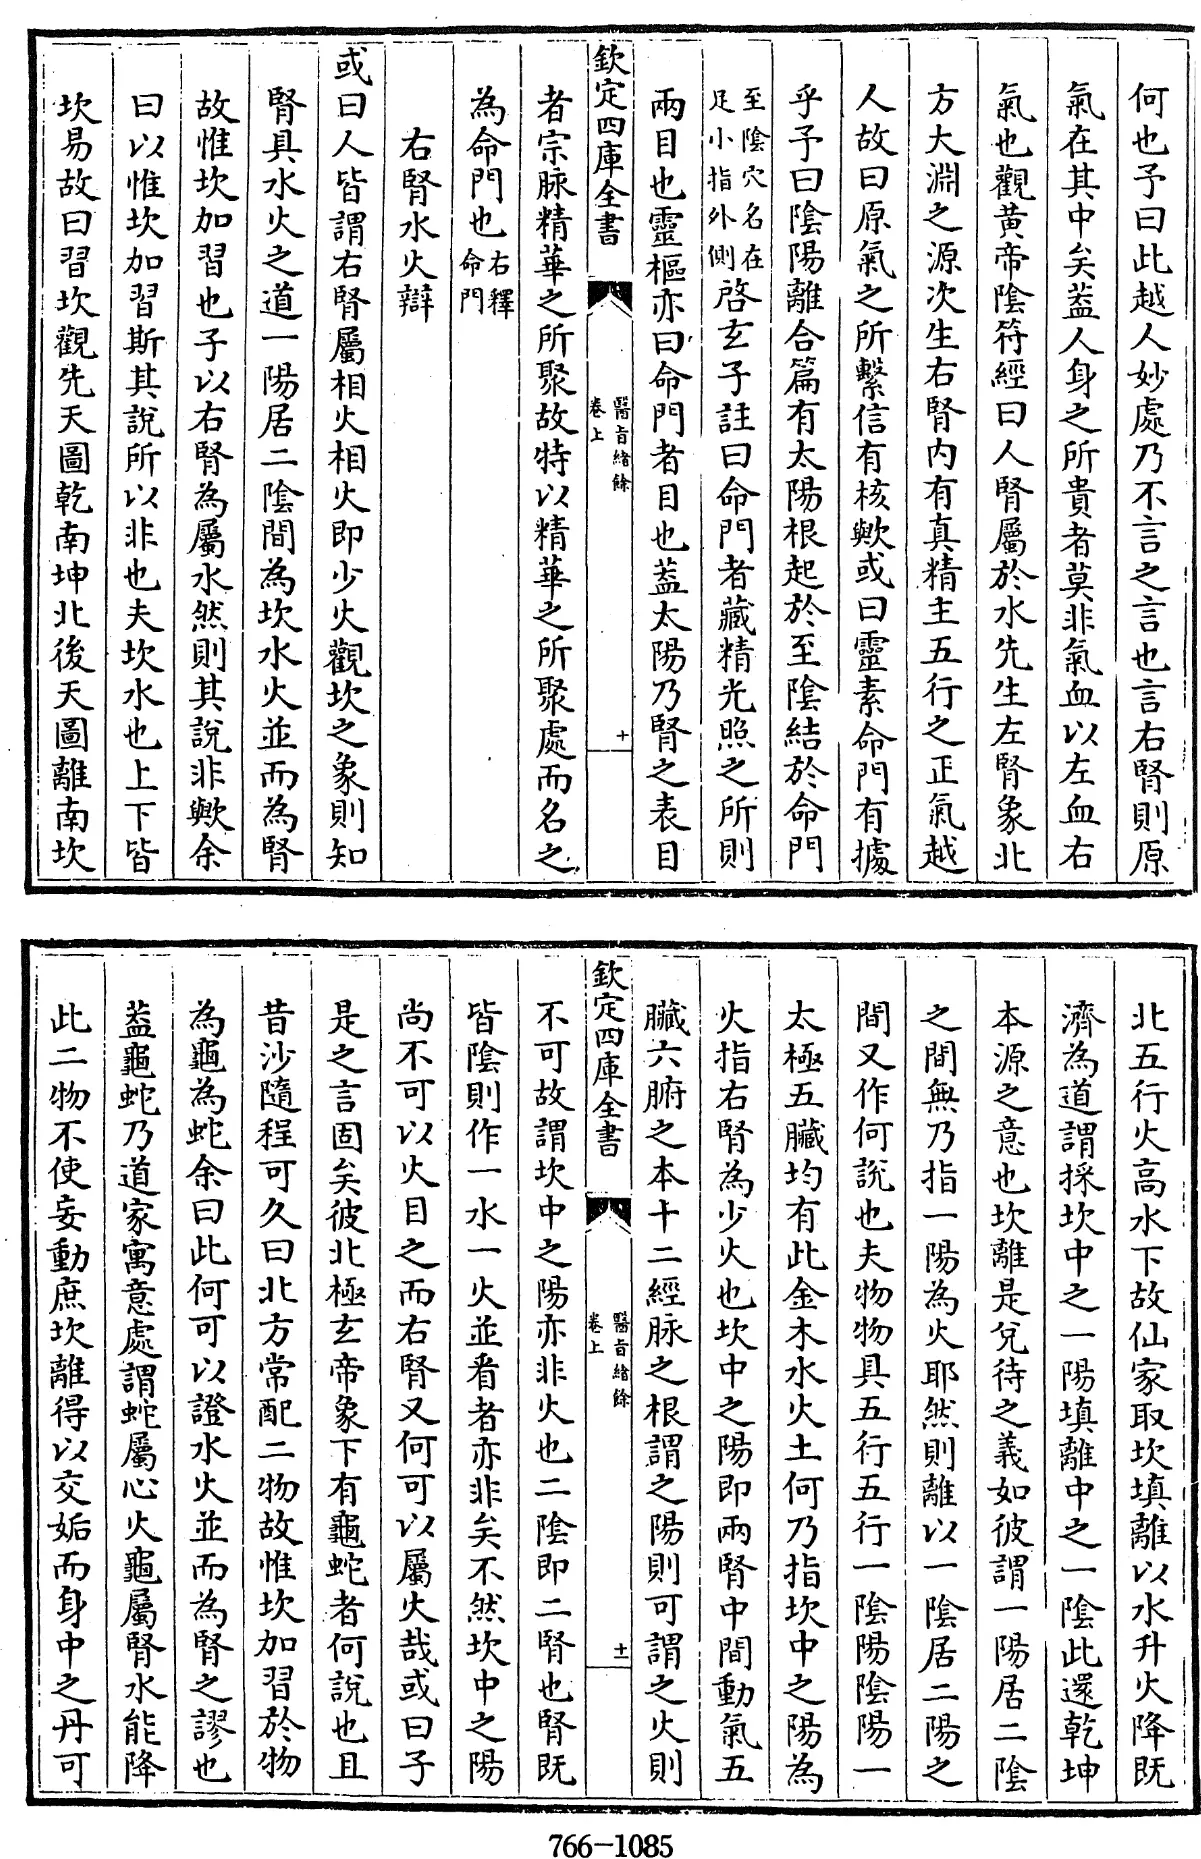 何也予曰此越人妙處乃不言之言也言右腎則原
氣在其中矣葢人身之所貴者莫非氣血以左血右
氣也觀黄帝陰符經曰人腎屬於水先生左腎象北
方大淵之源次生右腎内有真精主五行之正氣越
人故曰原氣之所繫信有核歟或曰靈素命門有據
乎予曰陰陽離合篇有太陽根起於至陰結於命門
至陰穴名在
足小指外側
啓玄子註曰命門者藏精光照之所則
兩目也靈樞亦曰命門者目也葢太陽乃腎之表目
欽定四庫全書
醫旨緒餘
卷上
十
者宗脉精華之所聚故特以精華之所聚處而名之
為命門也
右釋
命門
右腎水火辯
或曰人皆謂右腎屬相火相火即少火觀坎之象則知
腎具水火之道一陽居二陰間為坎水火並而為腎
故惟坎加習也子以右腎為屬水然則其說非歟余
曰以惟坎加習斯其說所以非也夫坎水也上下皆
坎易故曰習坎觀先天圖乾南坤北後天圖離南坎
北五行火高水下故仙家取坎填離以水升火降既
濟為道謂採坎中之一陽填離中之一陰此還乾坤
本源之意也坎離是兌待之義如彼謂一陽居二陰
之間無乃指一陽為火耶然則離以一陰居二陽之
間又作何說也夫物物具五行五行一陰陽陰陽一
太極五臟均有此金木水火土何乃指坎中之陽為
火指右腎為少火也坎中之陽即兩腎中間動氣五
臟六腑之本十二經脉之根謂之陽則可謂之火則
欽定四庫全書
醫旨緒餘
卷上
十一
不可故謂坎中之陽亦非火也二陰即二腎也腎既
皆陰則作一水一火並看者亦非矣不然坎中之陽
尚不可以火目之而右腎又何可以屬火哉或曰子
是之言固矣彼北極玄帝象下有龜蛇者何說也且
昔沙隨程可久曰北方常配二物故惟坎加習於物
為龜為蛇余曰此何可以證水火並而為腎之謬也
葢龜蛇乃道家寓意處謂蛇屬心火龜屬腎水能降
此二物不使妄動庶坎離得以交姤而身中之丹可
766-1085